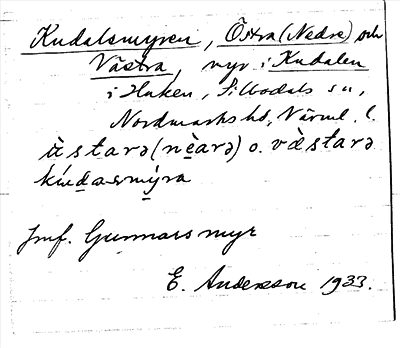 Kudalsmyren, Östra (Nedre) och
Västra, myr i Kudalen
i Haken, Sillbodals sn,
Nordmarks hd, Värml. l.
ùstarə (nèarə) o. væ̀starə
kúdasmy̌ra
Jmf. Gunnarsmyr
E. Andersson 1933.